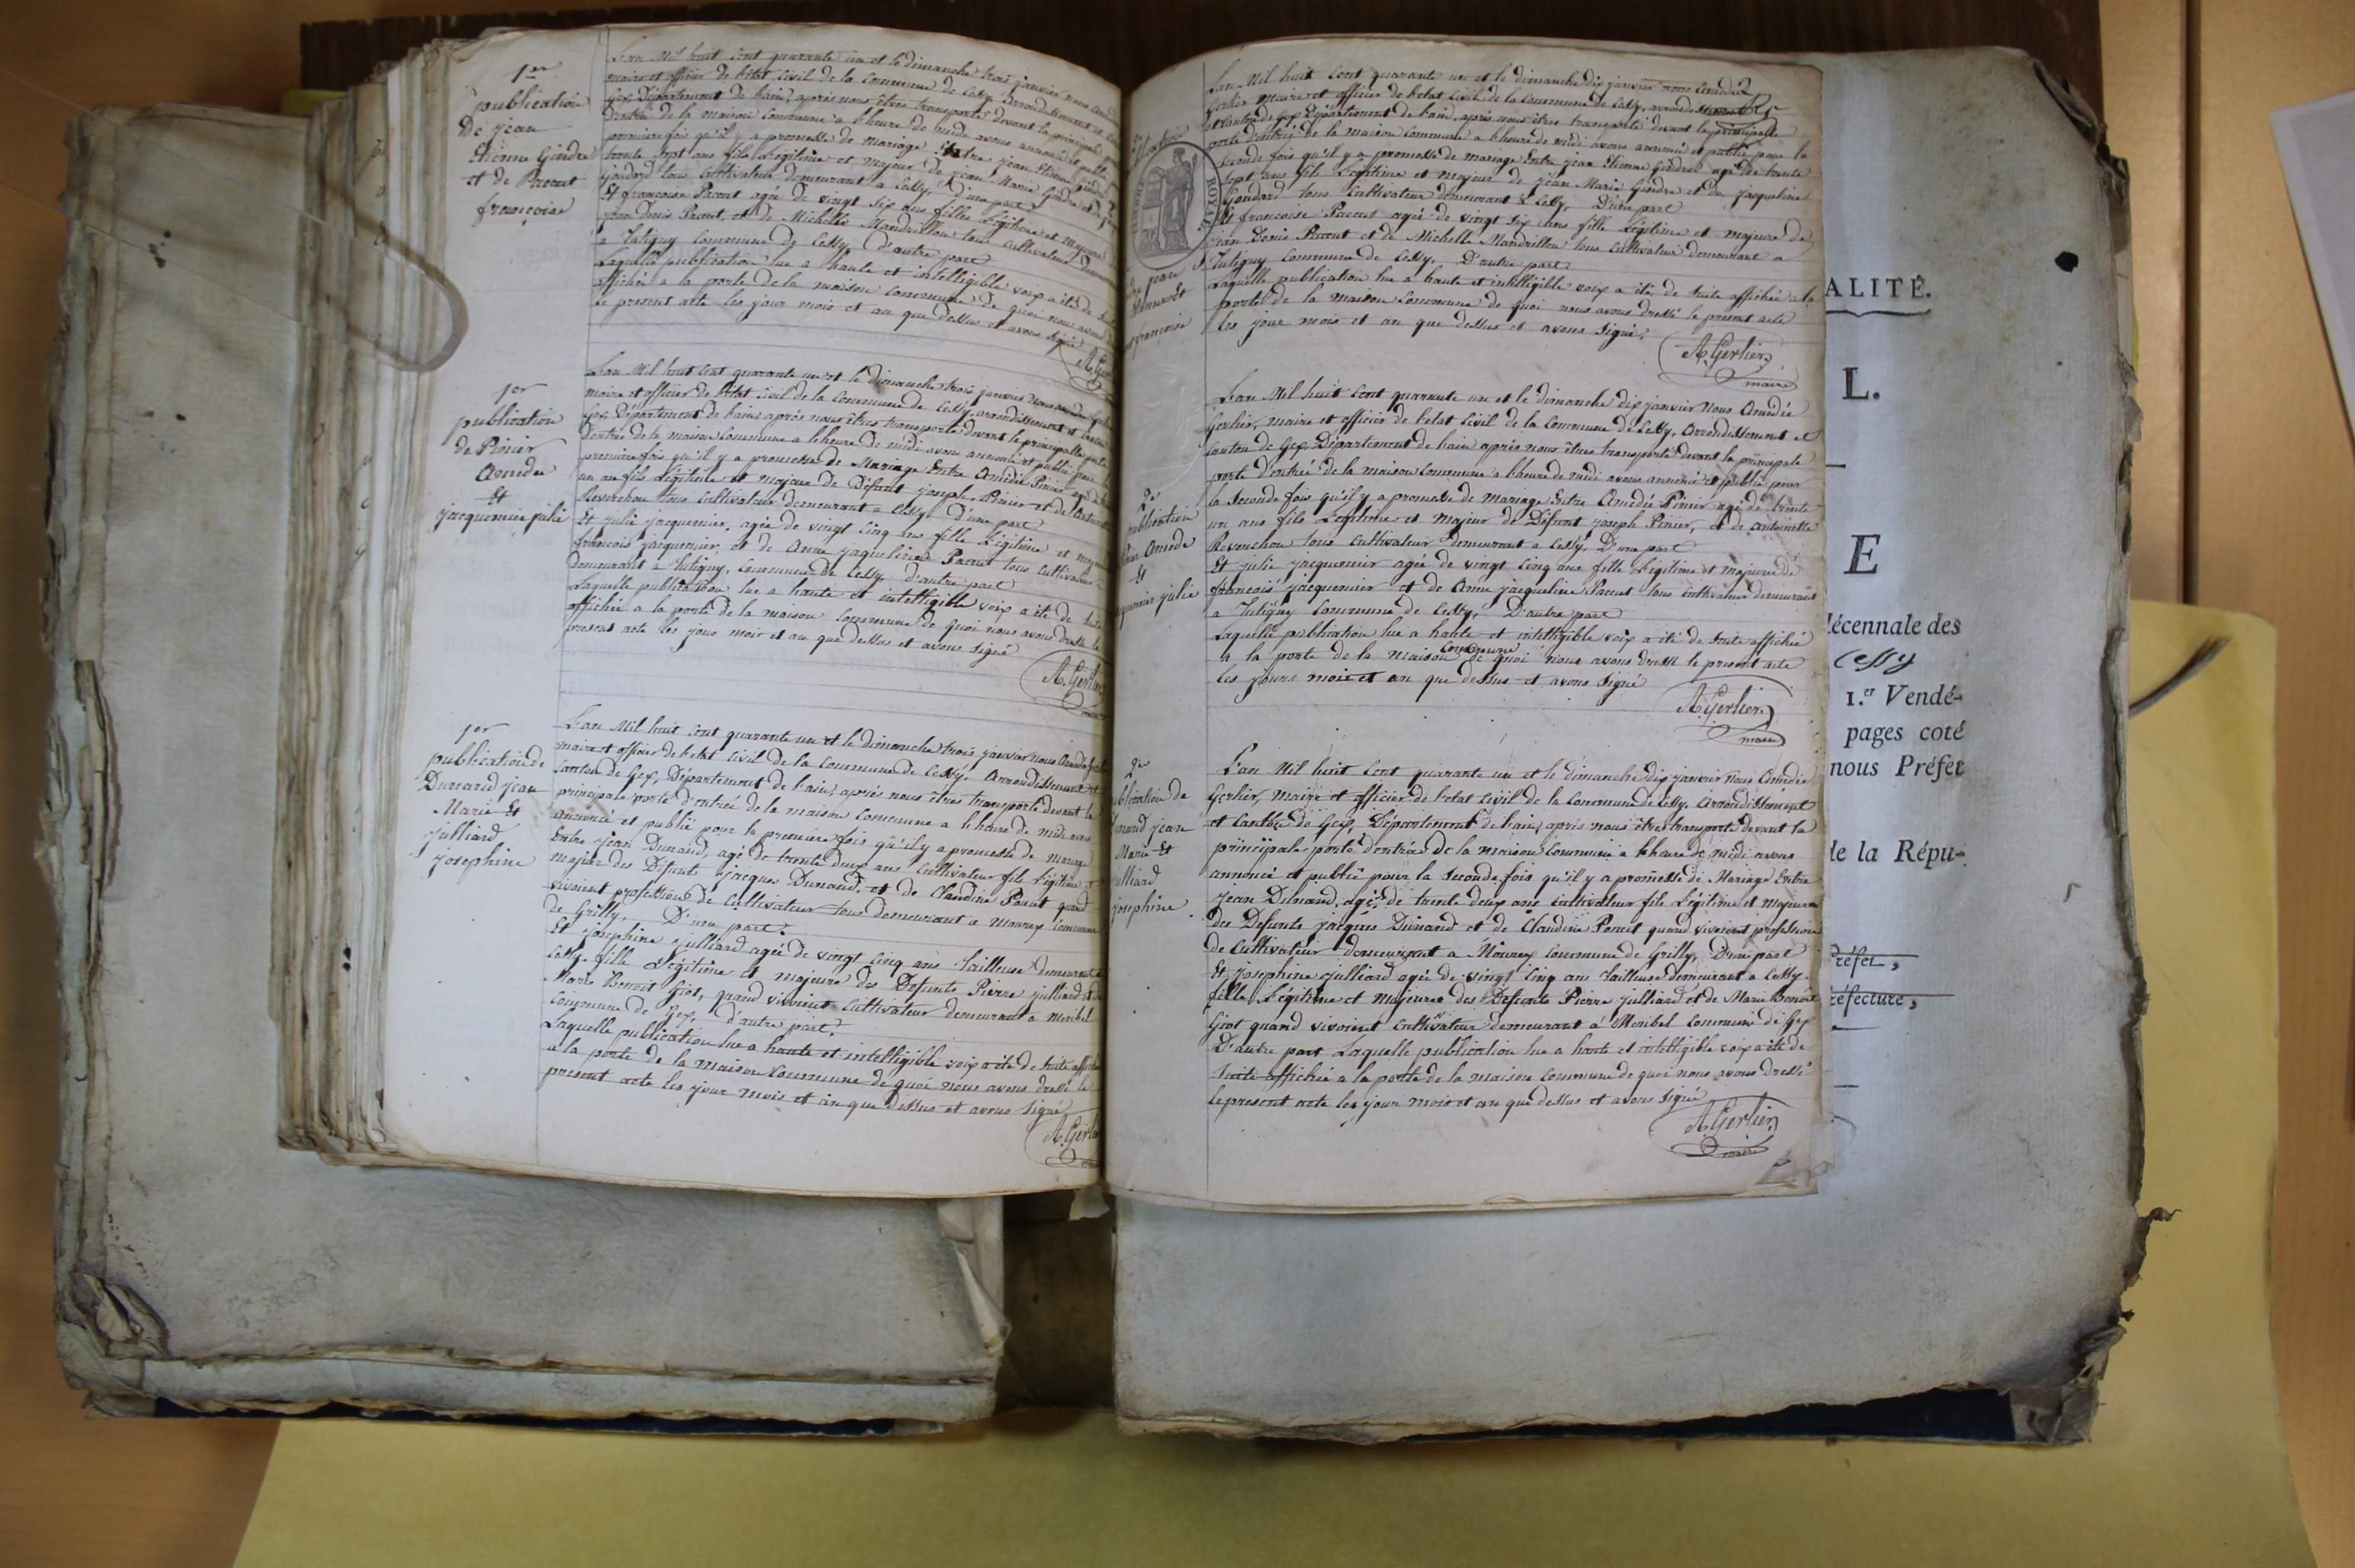 1er
publication
De jean
Etienne Gindre
et de Pacout
françoise
L'an Mil huit cent quarante un et le dimanche trois janvier nous
maire et officier de l'etat civil de la Commune de Cessy, arrondissement et
Gex, Département de l'ain, après nous être transporté devant la principale
d'entrée de la maison commune a l'heure de midi avons annoncé et publié
première fois qu'il y a promesse de mariage Entre jean Etienne Gindre
trente sept ans fils Légitime et majeur de jean Marie Gindre et de
Goudard tous Cultivateur demeurant a Cessy, D'une part
Et françoise Pacout agée de vingt six ans fille Légitime et majeure
jean Denis Pacout, et de Michelle Mandrillon tous Cultivateur
a Tutigny Commune de Cessy, d'autre part
Laquelle publication lue a haute et intelligible voix a été de
affichée a la porte de la maison commune de quoi nous avons
le present acte les jour mois et an que dessus et avons signé
A. Ger
1er
publication
de Pinier
Amedée
Et
jacquemier julie
L'an Mil huit cent quarante un et le dimanche trois janvier nous
maire et officier de l'etat Civil de la Commune de Cessy, arrondissement et
Gex, Département de l'ain, après nous être transporté devant la principale
D'entrée de la maison Commune a l'heure de midi avons annoncé et publié pour
première fois qu'il y a promesse de Mariage Entre Amédée Pinier agé
un an fils Légitime et majeur de Défunt joseph Pinier et de
Revenchon tous Cultivateur demeurant a Cessy, D'une part
Et julie jacquemier, agée de vingt cinq ans fille Légitime et
françois jacquemier, et de Anne jaqueline Paccut tous Cultivateur
demeurant a Tutigny, Commune de Cessy, d'autre part
Laquelle publication lue a haute et intelligible voix a été de suite
affichée a la porte de la maison Commune de quoi nous avons dressé le
present acte les jour mois et an que dessus et avons signé
A. Gerlier
1er
publication de
Dunand jean
Marie Et
julliard
josephine
L'an Mil huit cent quarante un et le dimanche trois janvier nous
maire et officier de l'etat civil de la Commune de Cessy. Arrondissement et
Canton de Gex, Département de l'ain, après nous être transporté devant la
principale porte d'entrée de la maison commune a l'heure de midi avons
annoncé et publié pour la première fois qu'il y a promesse de mariage
Entre jean Dunand, agé de trente deux ans Cultivateur fils Légitime et
majeur des Défunts jacques Dunand, et de Claudine Poncit quand
vivoient profession de Cultivateur tous demeurant a Mourex Commune
de Grilly, D'une part.
Et josephine julliard agée de vingt cinq ans tailleuse demeurant a
Cessy. fille Légitime et majeure des Défunts Pierre julliard et de
Marie Benoit Giot, quand vivoient Cultivateur demeurant a Moribel
Commune de Gex, d'autre part
Laquelle publication lue a haute et intelligible voix a été de suite affichée
a la porte de la maison Commune de quoi nous avons dressé le
present acte les jour mois et an que dessus et avons signé
A. Gerlier
ROYAL
françoise
L'an Mil huit cent quarante un et le dimanche dix janvier nous Amédée
Gerlier maire et officier de l'etat civil de la Commune de Cessy, arrondissement
et Canton de Gex Département de l'ain, après nous être transporté devant la principale
porte d'entrée de la maison Commune a l'heure de midi avons annoncé et publié pour la
seconde fois qu'il y a promesse de mariage Entre jean Etienne Gindre agé de trente
sept ans fils Légitime et majeur de jean Marie Gindre et de jaqueline
Goudard tous Cultivateur demeurant a Cessy, D'une part
Et françoise Pacout agée de vingt six ans fille Légitime et majeure de
jean Denis Pacout et de Michelle Mandrillon tous Cultivateur demeurant a
Tutigny Commune de Cessy, D'autre part
Laquelle publication lue a haute et intelligible voix a été de suite affichée a la
porte de la maison Commune de quoi nous avons dressé le present acte
les jour mois et an que dessus et avons signé,
A. Gerlier
maire
2e
publication
Amedée
Et
julie
L'an Mil huit cent quarante un et le dimanche dix janvier Nous Amédée
Gerlier, maire et officier de l'etat Civil de la Commune de Cessy, Arrondissement et
Canton de Gex, Département de l'ain après nous être transporté devant la principale
porte d'entrée de la maison Commune a l'heure de midi avons annoncé et publié pour
la seconde fois qu'il y a promesse de mariage Entre Amédée Pinier agé de trente
un ans fils Légitime et majeur de Défunt joseph Pinier, et de Antoinette
Revenchon tous Cultivateur demeurant a Cessy, D'une part
Et julie jacquemier agée de vingt cinq ans fille Légitime et majeure de
françois jacquemier et de Anne jacqueline Paccut tous Cultivateur demeurant
a Tutigny Commune de Cessy, D'autre part
Laquelle publication lue a haute et intelligible voix a été de suite affichée
a la porte de la maison commune de quoi nous avons dressé le present acte
les jours mois et an que dessus et avons signé
A. Gerlier
maire
2e
publication de
Dunand jean
Marie Et
julliard
josephine
L'an Mil huit cent quarante un et le dimanche dix janvier nous Amédée
Gerlier, Maire et officier de l'etat civil de la Commune de Cessy. Arrondissement
et Canton de Gex, Département de l'ain, après nous être transporté devant la
principale porte d'entrée de la maison Commune a l'heure de midi avons
annoncé et publié pour la seconde fois qu'il y a promesse de Mariage Entre
jean Dunand, agé de trente deux ans Cultivateur fils Légitime et majeur
des Défunts jacques Dunand et de Claudine Poncit quand vivoient profession
de Cultivateur demeurant a Mourex Commune de Grilly, D'une part
Et josephine julliard agée de vingt cinq ans tailleuse demeurant a Cessy.
fille Légitime et majeure des Défunts Pierre julliard et de Marie Benoit
Giot quand vivoient Cultivateur demeurant a Moribel Commune de Gex
D'autre part Laquelle publication lue a haute et intelligible voix a été de
suite affichée a la porte de la maison Commune de quoi nous avons dressé
le present acte les jour mois et an que dessus et avons signé
A. Gerlier
maire
ALITÉ.
L.
E
décennale des
Cessy
1.er Vendé-
pages coté
nous Préfet
de la Répu-
Préfet,
réfecture,